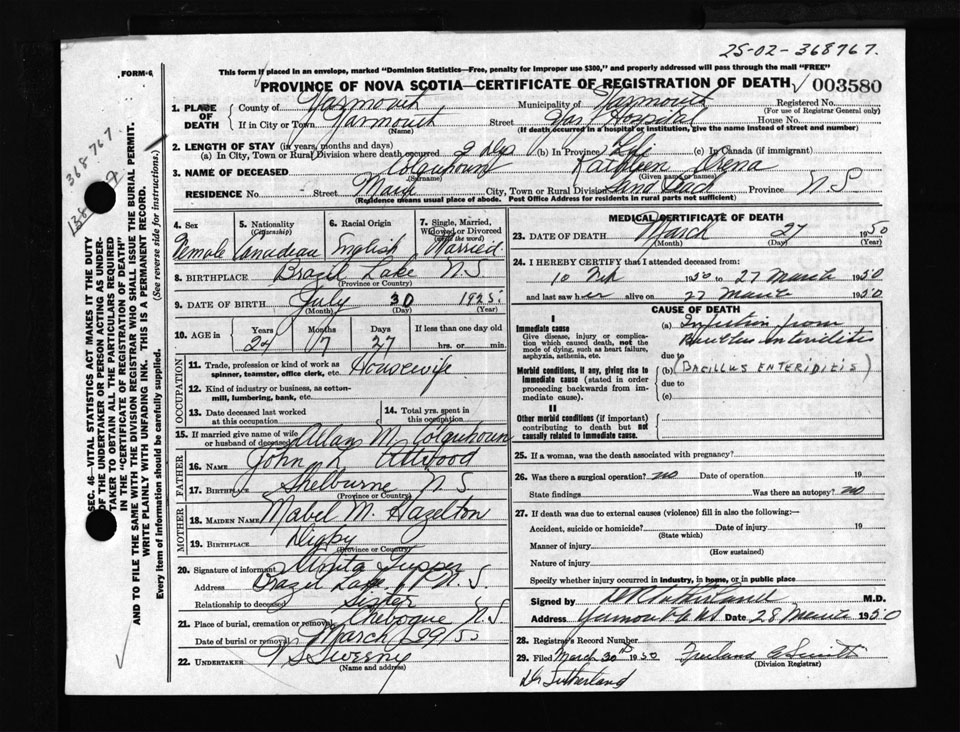 25-02-368767.
FORM-6,
This form if placed in an envelope, marked "Dominion Statistics—Free, penalty for improper use $300," and properly addressed will pass through the mail "FREE"
PROVINCE OF NOVA SCOTIA—CERTIFICATE OF REGISTRATION OF DEATH 003580
1. PLACE OF DEATH
County of Yarmouth Municipality of Yarmouth Registered No.
(For use of Registrar General only)
If in City or Town Yarmouth Street Yar Hospital House No.
(Name) (If death occurred in a hospital or institution, give the name instead of street and number)
2. LENGTH OF STAY (in years, months and days)
(a) In City, Town or Rural Division where death occurred 2 Dys (b) In Province Life (c) In Canada (if immigrant)
3. NAME OF DECEASED Colquhoun Kathleen Orena
(Surname) (Given name or names)
RESIDENCE No. Street Main City, Town or Rural Division Sand Beach Province N.S
(Residence means usual place of abode. Post Office Address for residents in rural parts not sufficient)
4. Sex 5. Nationality (Citizenship) 6. Racial Origin 7. Single, Married, Widowed or Divorced (write the word)
Female Canadian English Married
8. BIRTHPLACE Brazil Lake N.S
(Province or Country)
9. DATE OF BIRTH July 30 1925
(Month) (Day) (Year)
10. AGE in Years Months Days If less than one day old
24 7 27 hrs. or min.
OCCUPATION
11. Trade, profession or kind of work as spinner, teamster, office clerk, etc. Housewife
12. Kind of industry or business, as cotton-mill, lumbering, bank, etc.
13. Date deceased last worked at this occupation
14. Total yrs. spent in this occupation
15. If married give name of wife or husband of deceased Allan M Colquhoun
FATHER
16. NAME John L Attwood
17. BIRTHPLACE Shelburne N S
(Province or Country)
MOTHER
18. MAIDEN NAME Mabel M. Hazelton
19. BIRTHPLACE Digby
(Province or Country)
20. Signature of informant Anita Tupper
Address Brazil Lake N.S.
Relationship to deceased Sister
21. Place of burial, cremation or removal Chebogue N.S
Date of burial or removal March 29/50
22. UNDERTAKER V S Sweeny
(Name and address)
MEDICAL CERTIFICATE OF DEATH
23. DATE OF DEATH March 27 1950
(Month) (Day) (Year)
24. I HEREBY CERTIFY that I attended deceased from:
10 Feb 1950 to 27 March 1950
and last saw her alive on 27 March 1950
CAUSE OF DEATH
I
Immediate cause
Give disease, injury or complication which caused death, not the mode of dying, such as heart failure, asphyxia, asthenia, etc.
Morbid conditions, if any, giving rise to immediate cause (stated in order proceeding backwards from immediate cause).
(a) Infection from
Bacillus enteriditis
due to
(b) (BACILLUS ENTERIDITIS)
due to
(c)
II
Other morbid conditions (if important) contributing to death but not causally related to immediate cause.
25. If a woman, was the death associated with pregnancy?
26. Was there a surgical operation? no Date of operation 19
State findings Was there an autopsy? no
27. If death was due to external causes (violence) fill in also the following:—
Accident, suicide or homicide? Date of injury 19
(State which)
Manner of injury
(How sustained)
Nature of injury
Specify whether injury occurred in industry, in home, or in public place
Signed by Sutherland M.D.
Address Yarmouth NS Date 28 March 1950
28. Registrar's Record Number
29. Filed March 30th 1950 Freeland E Smith
(Division Registrar)
Dr Sutherland
368767
SEC. 46—VITAL STATISTICS ACT MAKES IT THE DUTY
OF THE UNDERTAKER OR PERSON ACTING AS UNDER-
TAKER TO OBTAIN ALL THE PARTICULARS REQUIRED
IN THE "CERTIFICATE OF REGISTRATION OF DEATH"
AND TO FILE THE SAME WITH THE DIVISION REGISTRAR WHO SHALL ISSUE THE BURIAL PERMIT.
WRITE PLAINLY WITH UNFADING INK. THIS IS A PERMANENT RECORD.
Every item of information should be carefully supplied. (See reverse side for instructions.)